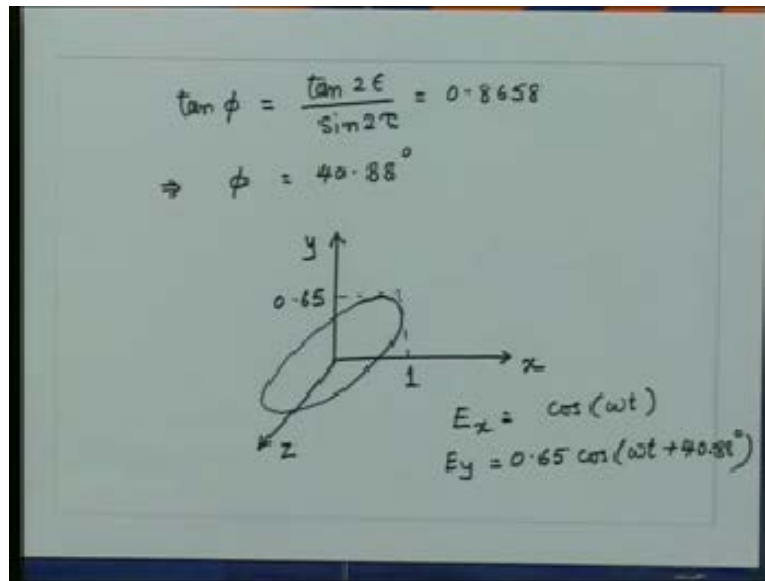 tan φ = tan 2ε / sin 2τ = 0.8658
⇒ φ = 40.88°
y
0.65
1
x
z
Ex = cos(ωt)
Ey = 0.65 cos(ωt + 40.88°)